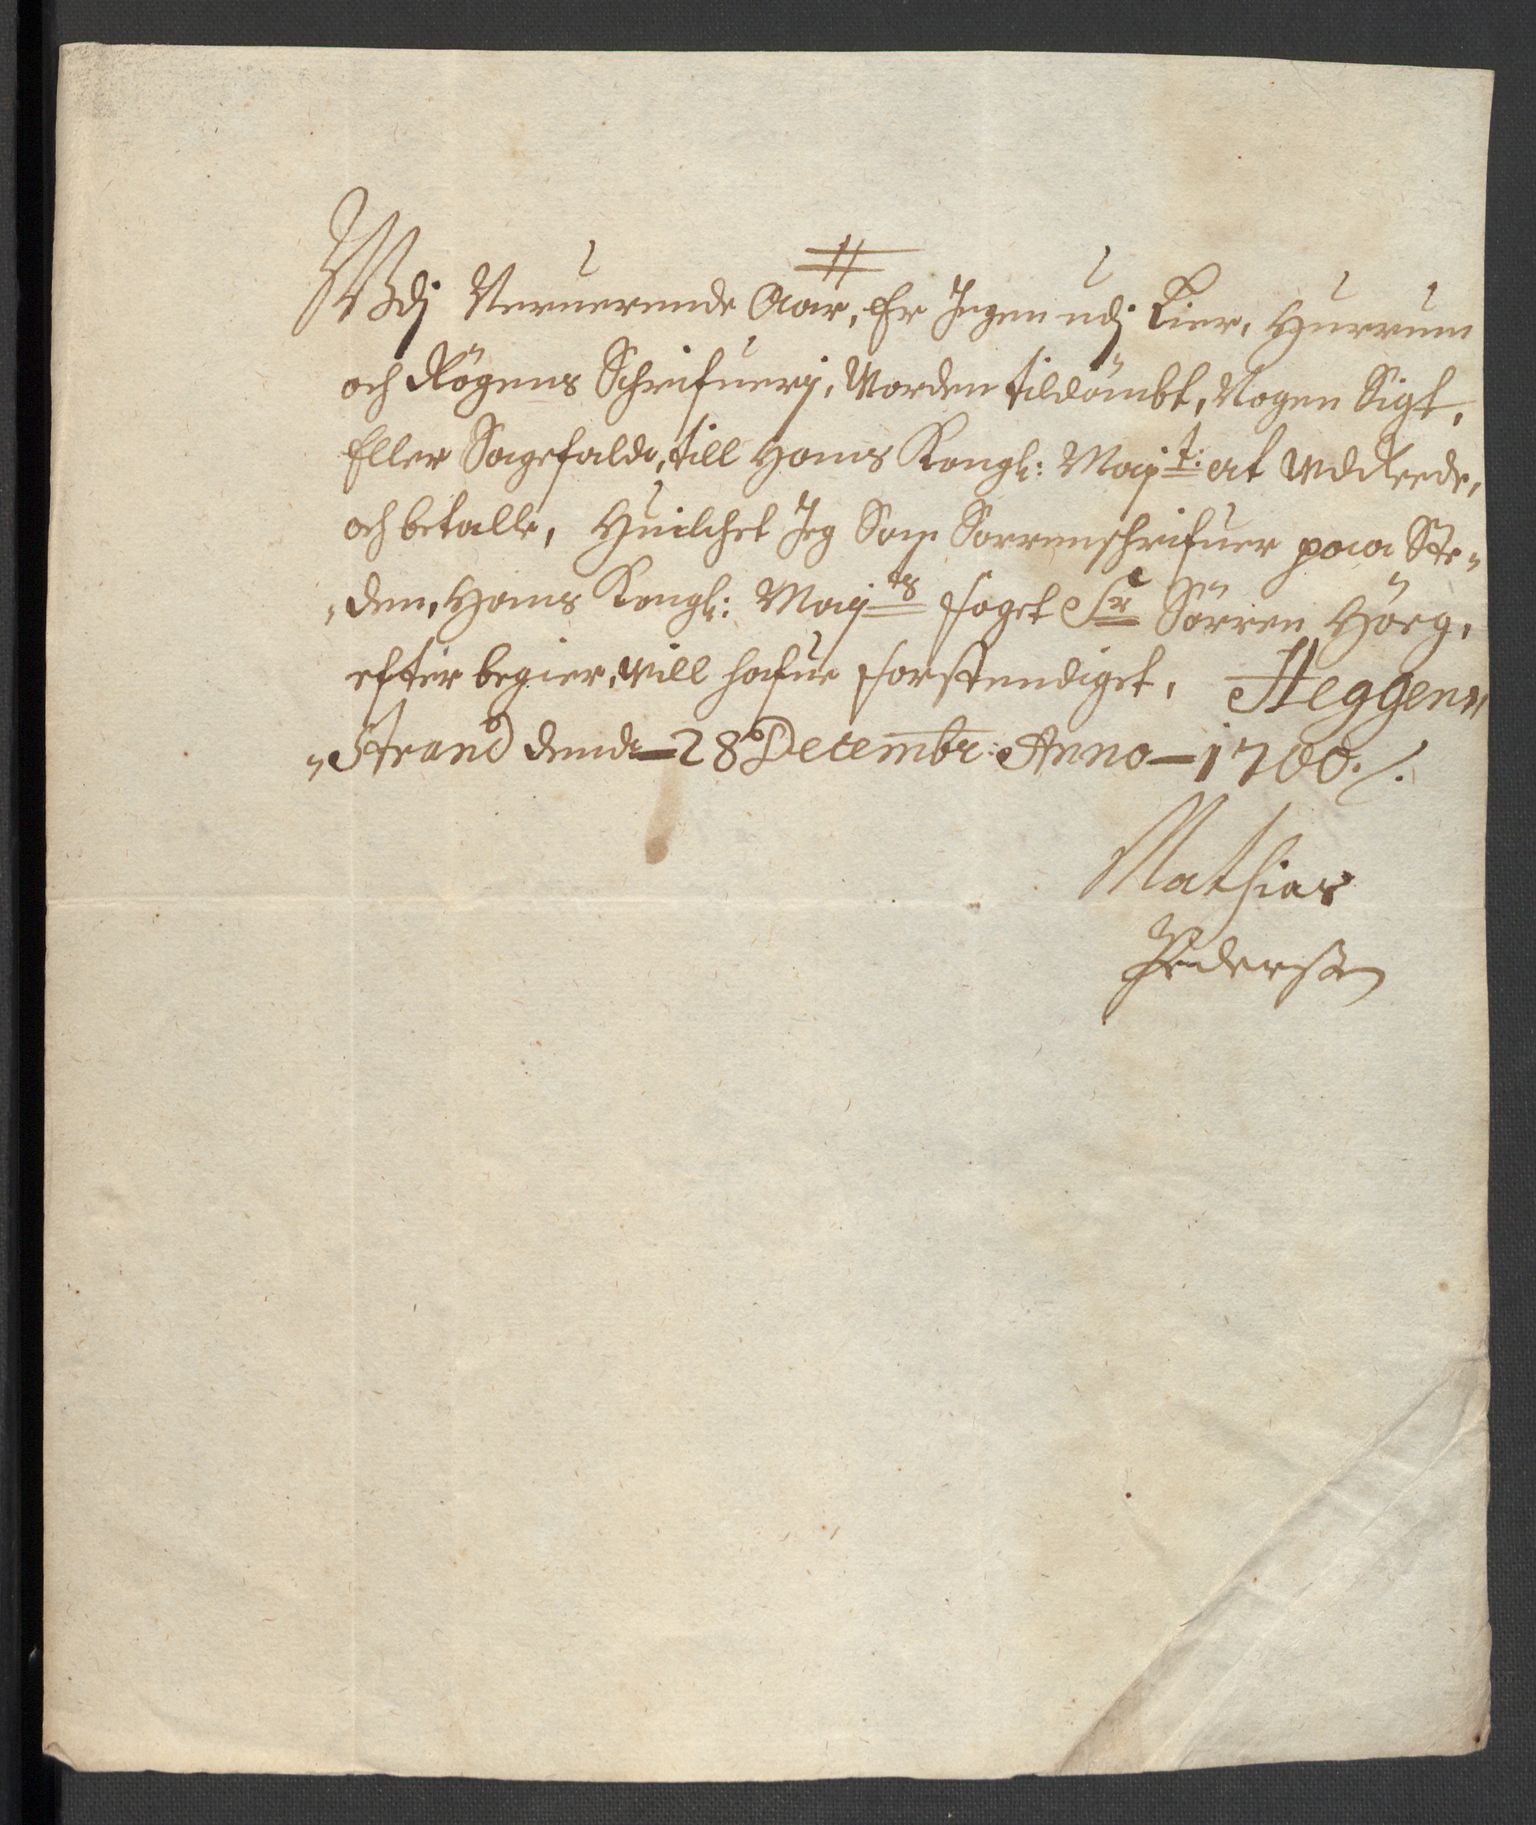 Udj Neruerende Aar, Er Ingen udj Lier, Hurrum
och Rögens Schrifuerj, Worden tildömbt, Nogen Sigt,
Eller Sagefald, till Hans Kongl: Majt: at Udreede,
och betalle, Huilchet Jeg Som Sorrenschrifuer paa Ste„
„den, Hans Kongl: Majts Foget Sr Sörren Höeg,
efter begier, will hafue Forstendiget, Heggen„
„Strand dend 28 Decembr: Anno 1700./.
Mathias
Pedersen